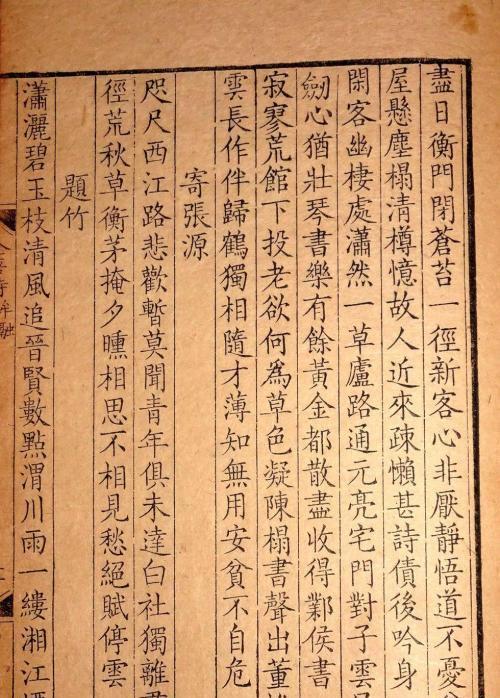 盡日衡門閉蒼苔一徑新客心非厭靜悟道不憂
屋懸塵榻清樽憶故人近來疎懶甚詩債後吟身
閑客幽棲處瀟然一草廬路通元亮宅門對子雲
劒心猶壯琴書樂有餘黃金都散盡收得鄴侯書
寂寥荒館下投老欲何為草色凝陳榻書聲出董
雲長作伴歸鶴獨相隨才薄知無用安貧不自危
寄張源
咫尺西江路悲歡暫莫聞青年俱未達白社獨離
徑荒秋草衡茅掩夕曛相思不相見愁絕賦停雲
題竹
瀟灑碧玉枝清風追晉賢數點渭川雨一縷湘江